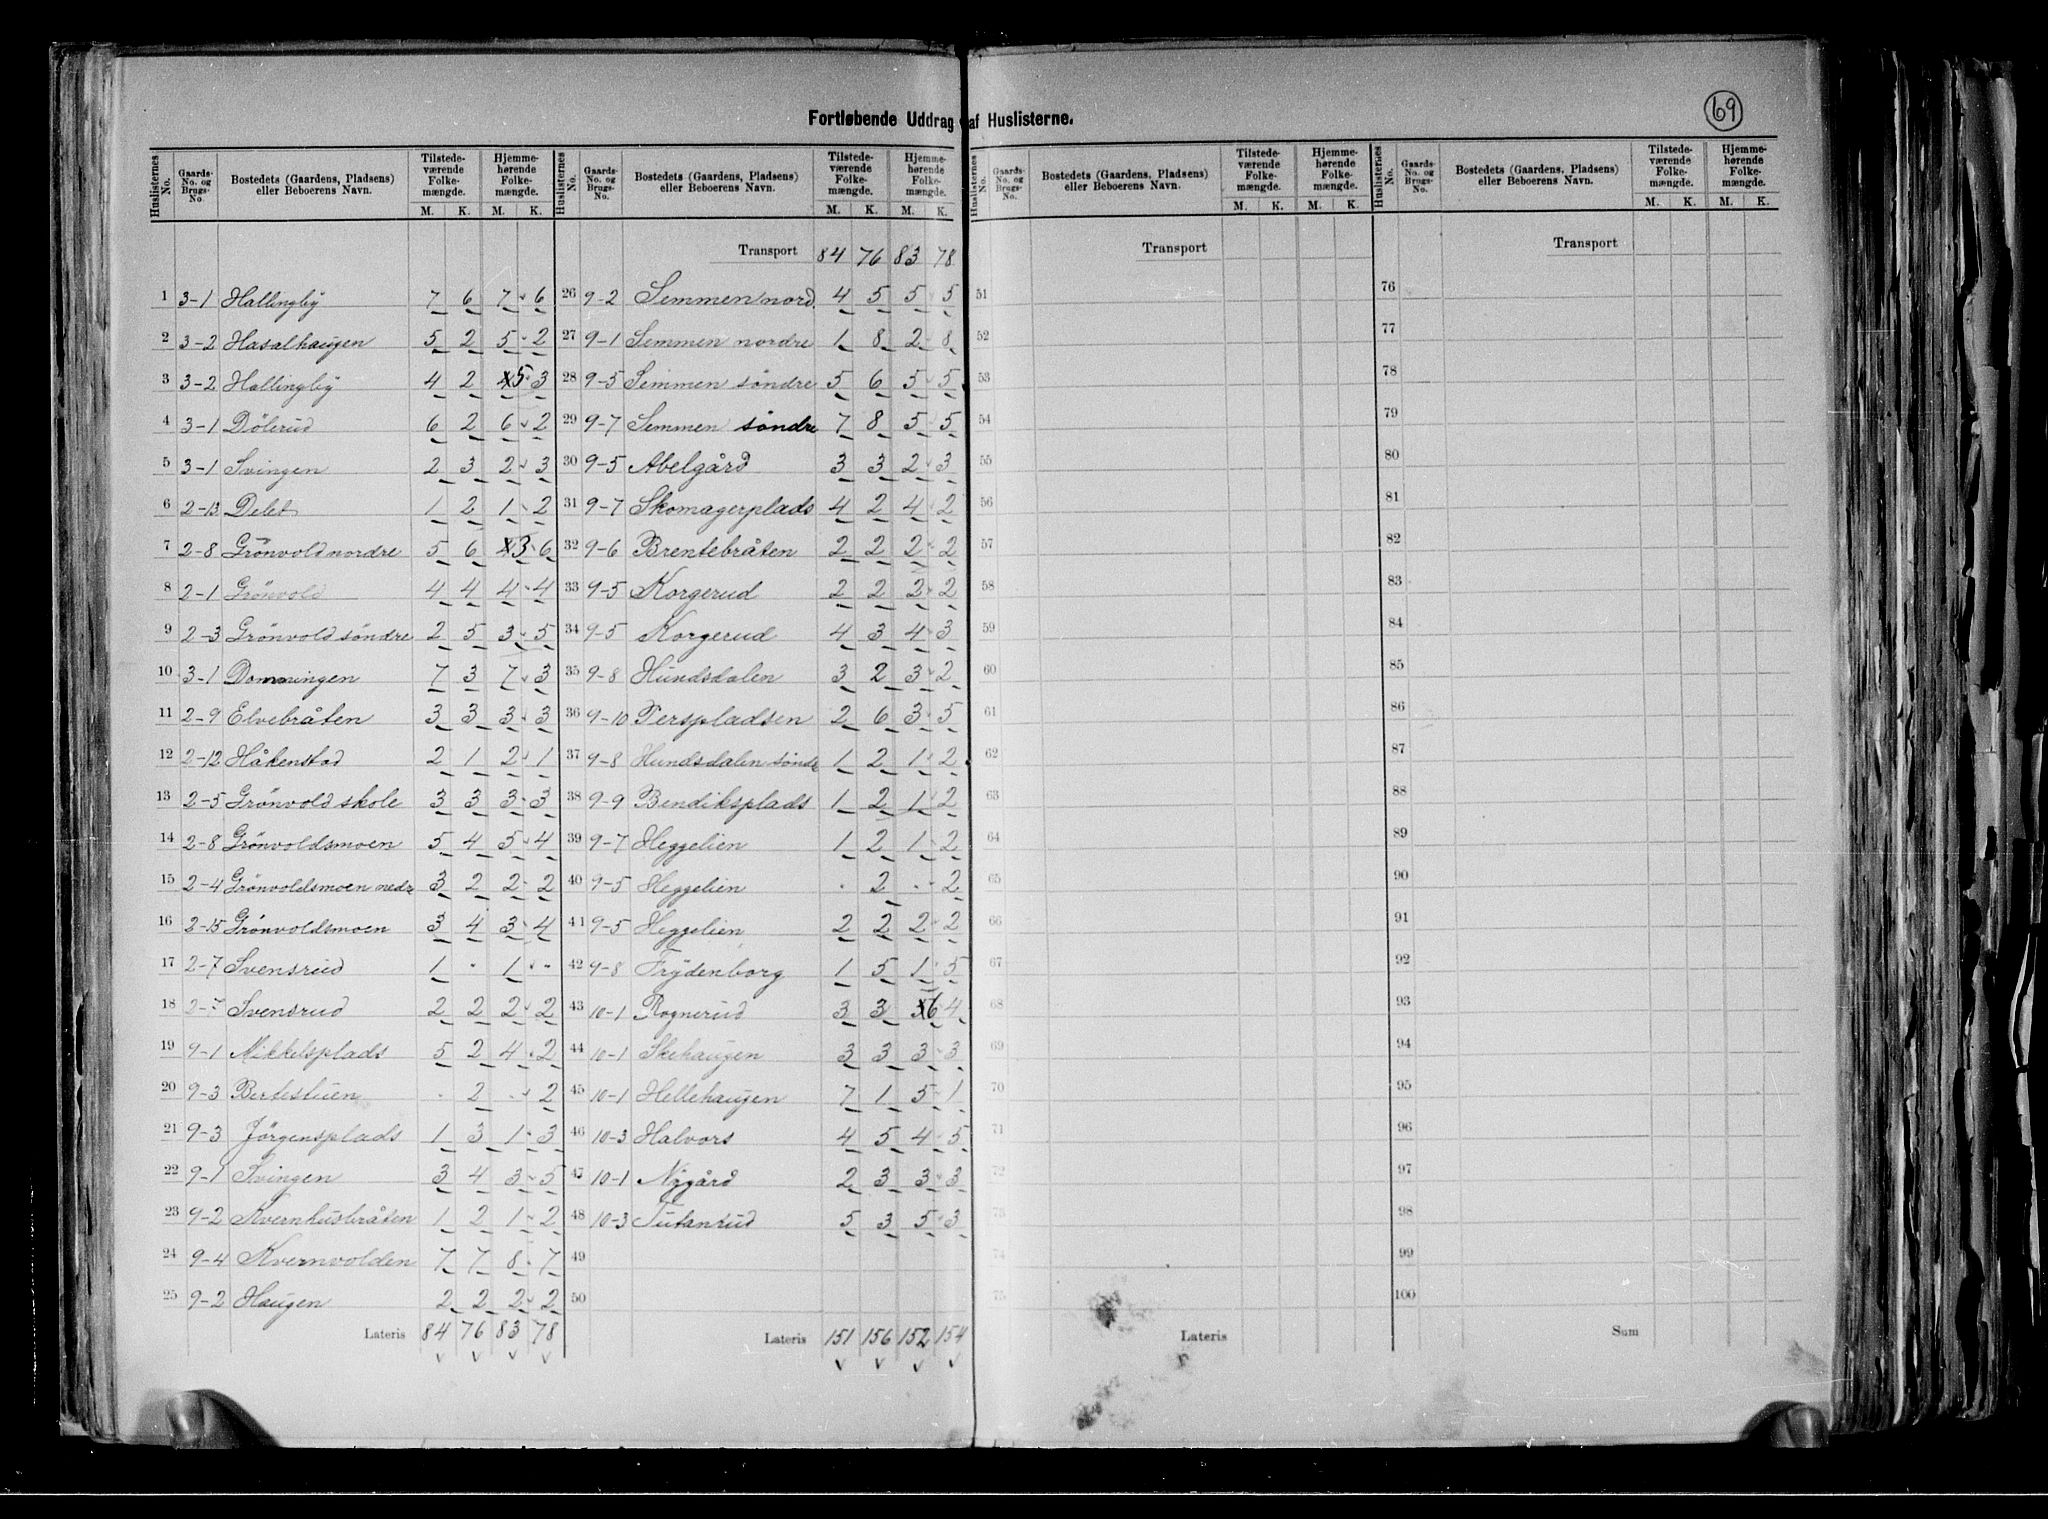 69
Fortløbende Uddrag af Huslisterne.
Huslisternes No. Gaards-No. og Brugs-No. Bostedets (Gaardens, Pladsens) eller Beboerens Navn. Tilstedeværende Folkemængde. M. K. Hjemmehørende Folkemængde. M. K.
1 3-1 Hallingby 7 6 7 6
2 3-2 Hasalhaugen 5 2 5 2
3 3-2 Hallingby 4 2 5 3
4 3-1 Dölerud 6 2 6 2
5 3-1 Svingen 2 3 2 3
6 2-13 Delet 1 2 1 2
7 2-8 Grönvold nordre 5 6 3 6
8 2-1 Grönvold 4 4 4 4
9 2-3 Grönvold söndre 2 5 3 5
10 3-1 Domningen 7 3 7 3
11 2-9 Elvebråten 3 3 3 3
12 2-12 Håkenstad 2 1 2 1
13 2-5 Grönvold skole 3 3 3 3
14 2-8 Grönvoldsmoen 5 4 5 4
15 2-4 Grönvoldsmoen nedr 3 2 2 2
16 2-15 Grönvoldsmoen 3 4 3 4
17 2-7 Svensrud 1 · 1 ·
18 2-7 Svensrud 2 2 2 2
19 9-1 Nikkelsplads 5 2 4 2
20 9-3 Bertestuen · 2 · 2
21 9-3 Jörgensplads 1 3 1 3
22 9-1 Svingen 3 4 3 5
23 9-2 Kvernhusbråten 1 2 1 2
24 9-4 Kvernvolden 7 7 8 7
25 9-2 Haugen 2 2 2 2
Lateris 84 76 83 78
Huslisternes No. Gaards-No. og Brugs-No. Bostedets (Gaardens, Pladsens) eller Beboerens Navn. Tilstedeværende Folkemængde. M. K. Hjemmehørende Folkemængde. M. K.
Transport 84 76 83 78
26 9-2 Semmen nord. 4 5 5 5
27 9-1 Semmen nordre 1 8 2 8
28 9-5 Semmen söndre 5 6 5 5
29 9-7 Semmen söndre 7 8 5 5
30 9-5 Abelgård 3 3 2 3
31 9-7 Skomagerplads 4 2 4 2
32 9-6 Brentebråten 2 2 2 2
33 9-5 Korgerud 2 2 2 2
34 9-5 Korgerud 4 3 4 3
35 9-8 Hundsdalen 3 2 3 2
36 9-10 Perspladsen 2 6 3 5
37 9-8 Hundsdalen sönde 1 2 1 2
38 9-9 Bendiksplads 1 2 1 2
39 9-7 Heggelien 1 2 1 2
40 9-5 Heggelien · 2 · 2
41 9-5 Heggelien 2 2 2 2
42 9-8 Frydenborg 1 5 1 5
43 10-1 Rognerud 3 3 6 4
44 10-1 Skehaugen 3 3 3 3
45 10-1 Hellehaugen 7 1 5 1
46 10-3 Halvors 4 5 4 5
47 10-1 Nygård 2 3 3 3
48 10-3 Tutanrud 5 3 5 3
49
50
Lateris 151 156 152 154
Huslisternes No. Gaards-No. og Brugs-No. Bostedets (Gaardens, Pladsens) eller Beboerens Navn. Tilstedeværende Folkemængde. M. K. Hjemmehørende Folkemængde. M. K.
Transport
51
52
53
54
55
56
57
58
59
60
61
62
63
64
65
66
67
68
69
70
71
72
73
74
75
Lateris
Huslisternes No. Gaards-No. og Brugs-No. Bostedets (Gaardens, Pladsens) eller Beboerens Navn. Tilstedeværende Folkemængde. M. K. Hjemmehørende Folkemængde. M. K.
Transport
76
77
78
79
80
81
82
83
84
85
86
87
88
89
90
91
92
93
94
95
96
97
98
99
100
Sum